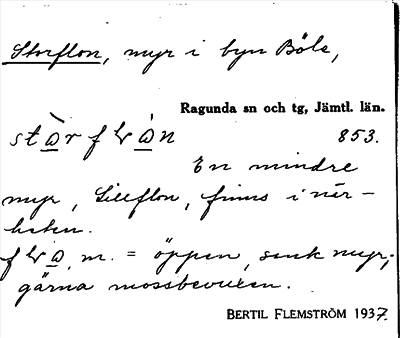 Storflon, myr i byn Böle,
Ragunda sn och tg, Jämtl. län.
853.
En mindre
myr, Lillflon, finns i när-
heten.
m. = öppen, sank myr,
gärna mossbevuxen.
BERTIL FLEMSTRÖM 1937.